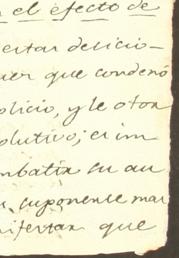 n el efecto de
ertar delicio-
uer que condenó
plicio, y le otor
olutivo; es im
mbatir su au
suponerse mar
nifestar que